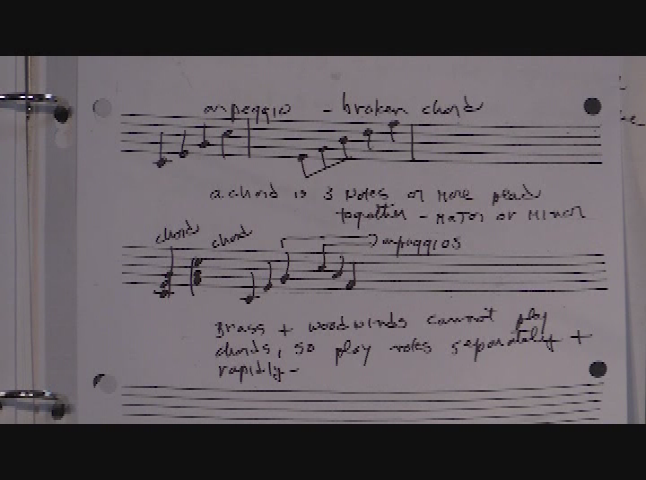 arpeggio - broken chord
a chord is 3 Notes or More
together - Major or Minor
chord chord
arpeggios
Brass + woodwinds cannot play
chords, so play notes separately +
rapidly -